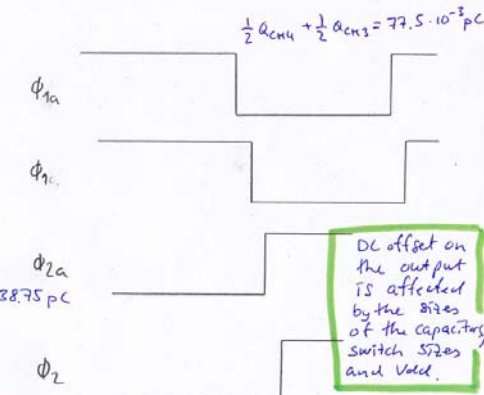 ½ Q_CH4 + ½ Q_CH3 = 77.5 · 10⁻³ pC
ϕ1a
ϕ1c
ϕ2a
38.75 pC
ϕ2
DC offset on
the output
is affected
by the sizes
of the capacitors,
switch sizes
and Vdd.